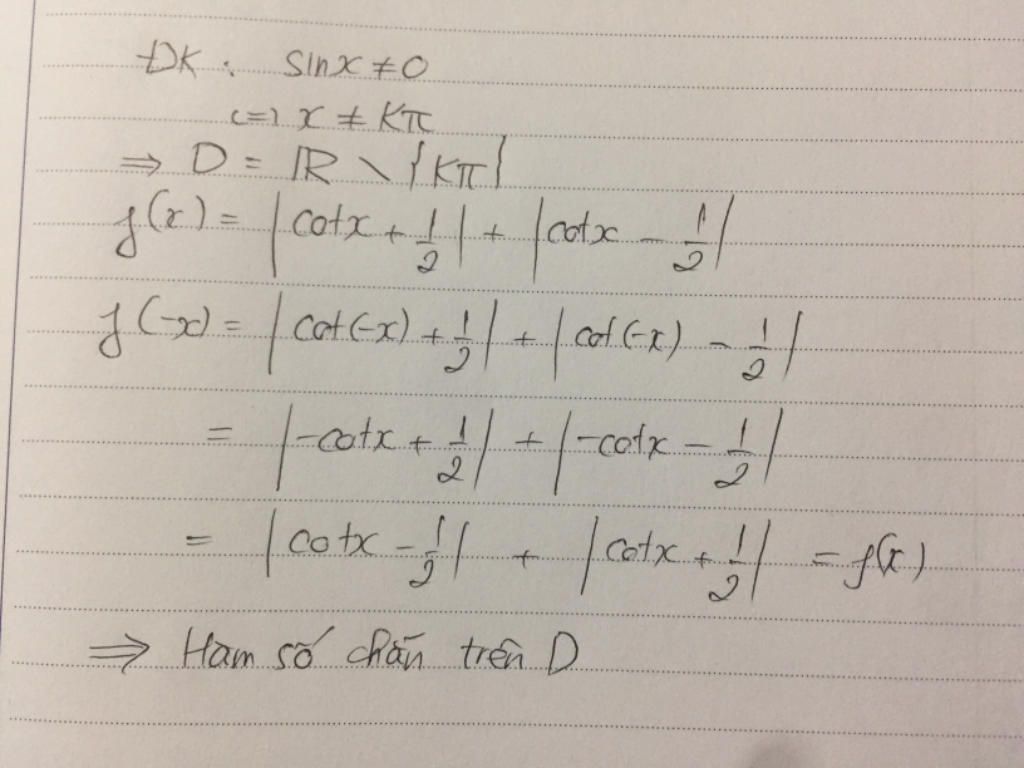 ĐK : sinx ≠ 0
<=> x ≠ Kπ
⇒ D = ℝ \ {Kπ}
f(x) = |cotx + 1/2| + |cotx - 1/2|
f(-x) = |cot(-x) + 1/2| + |cot(-x) - 1/2|
= |-cotx + 1/2| + |-cotx - 1/2|
= |cotx - 1/2| + |cotx + 1/2| = f(x)
⇒ Ham số chẵn trên D